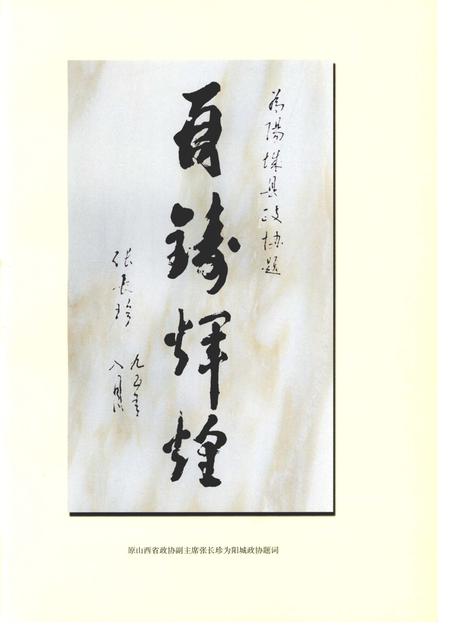 为陽城县政协题
再鑄煇煌
张長珍
九五年
八月
原山西省政协副主席张长珍为阳城政协题词